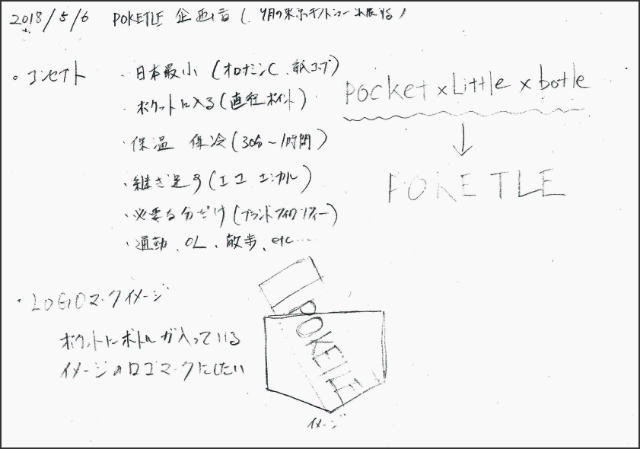 2018/5/6 POKETLE 企画書 (9月の東京ギフトショー出展する)
・コンセプト
・日本最小 (オロナミンC、紙コップ)
・ポケットに入る (直径ポイント)
・保温 保冷 (30分〜1時間)
・継ぎ足す (エコ エシカル)
・必要な分だけ (ブランドアイデンティティー)
・通勤、OL、散歩、etc...
pocket×Little×botle
↓
POKETLE
・LOGOマークイメージ
ポケットにボトルが入っている
イメージのロゴマークにしたい
POKETLE
イメージ